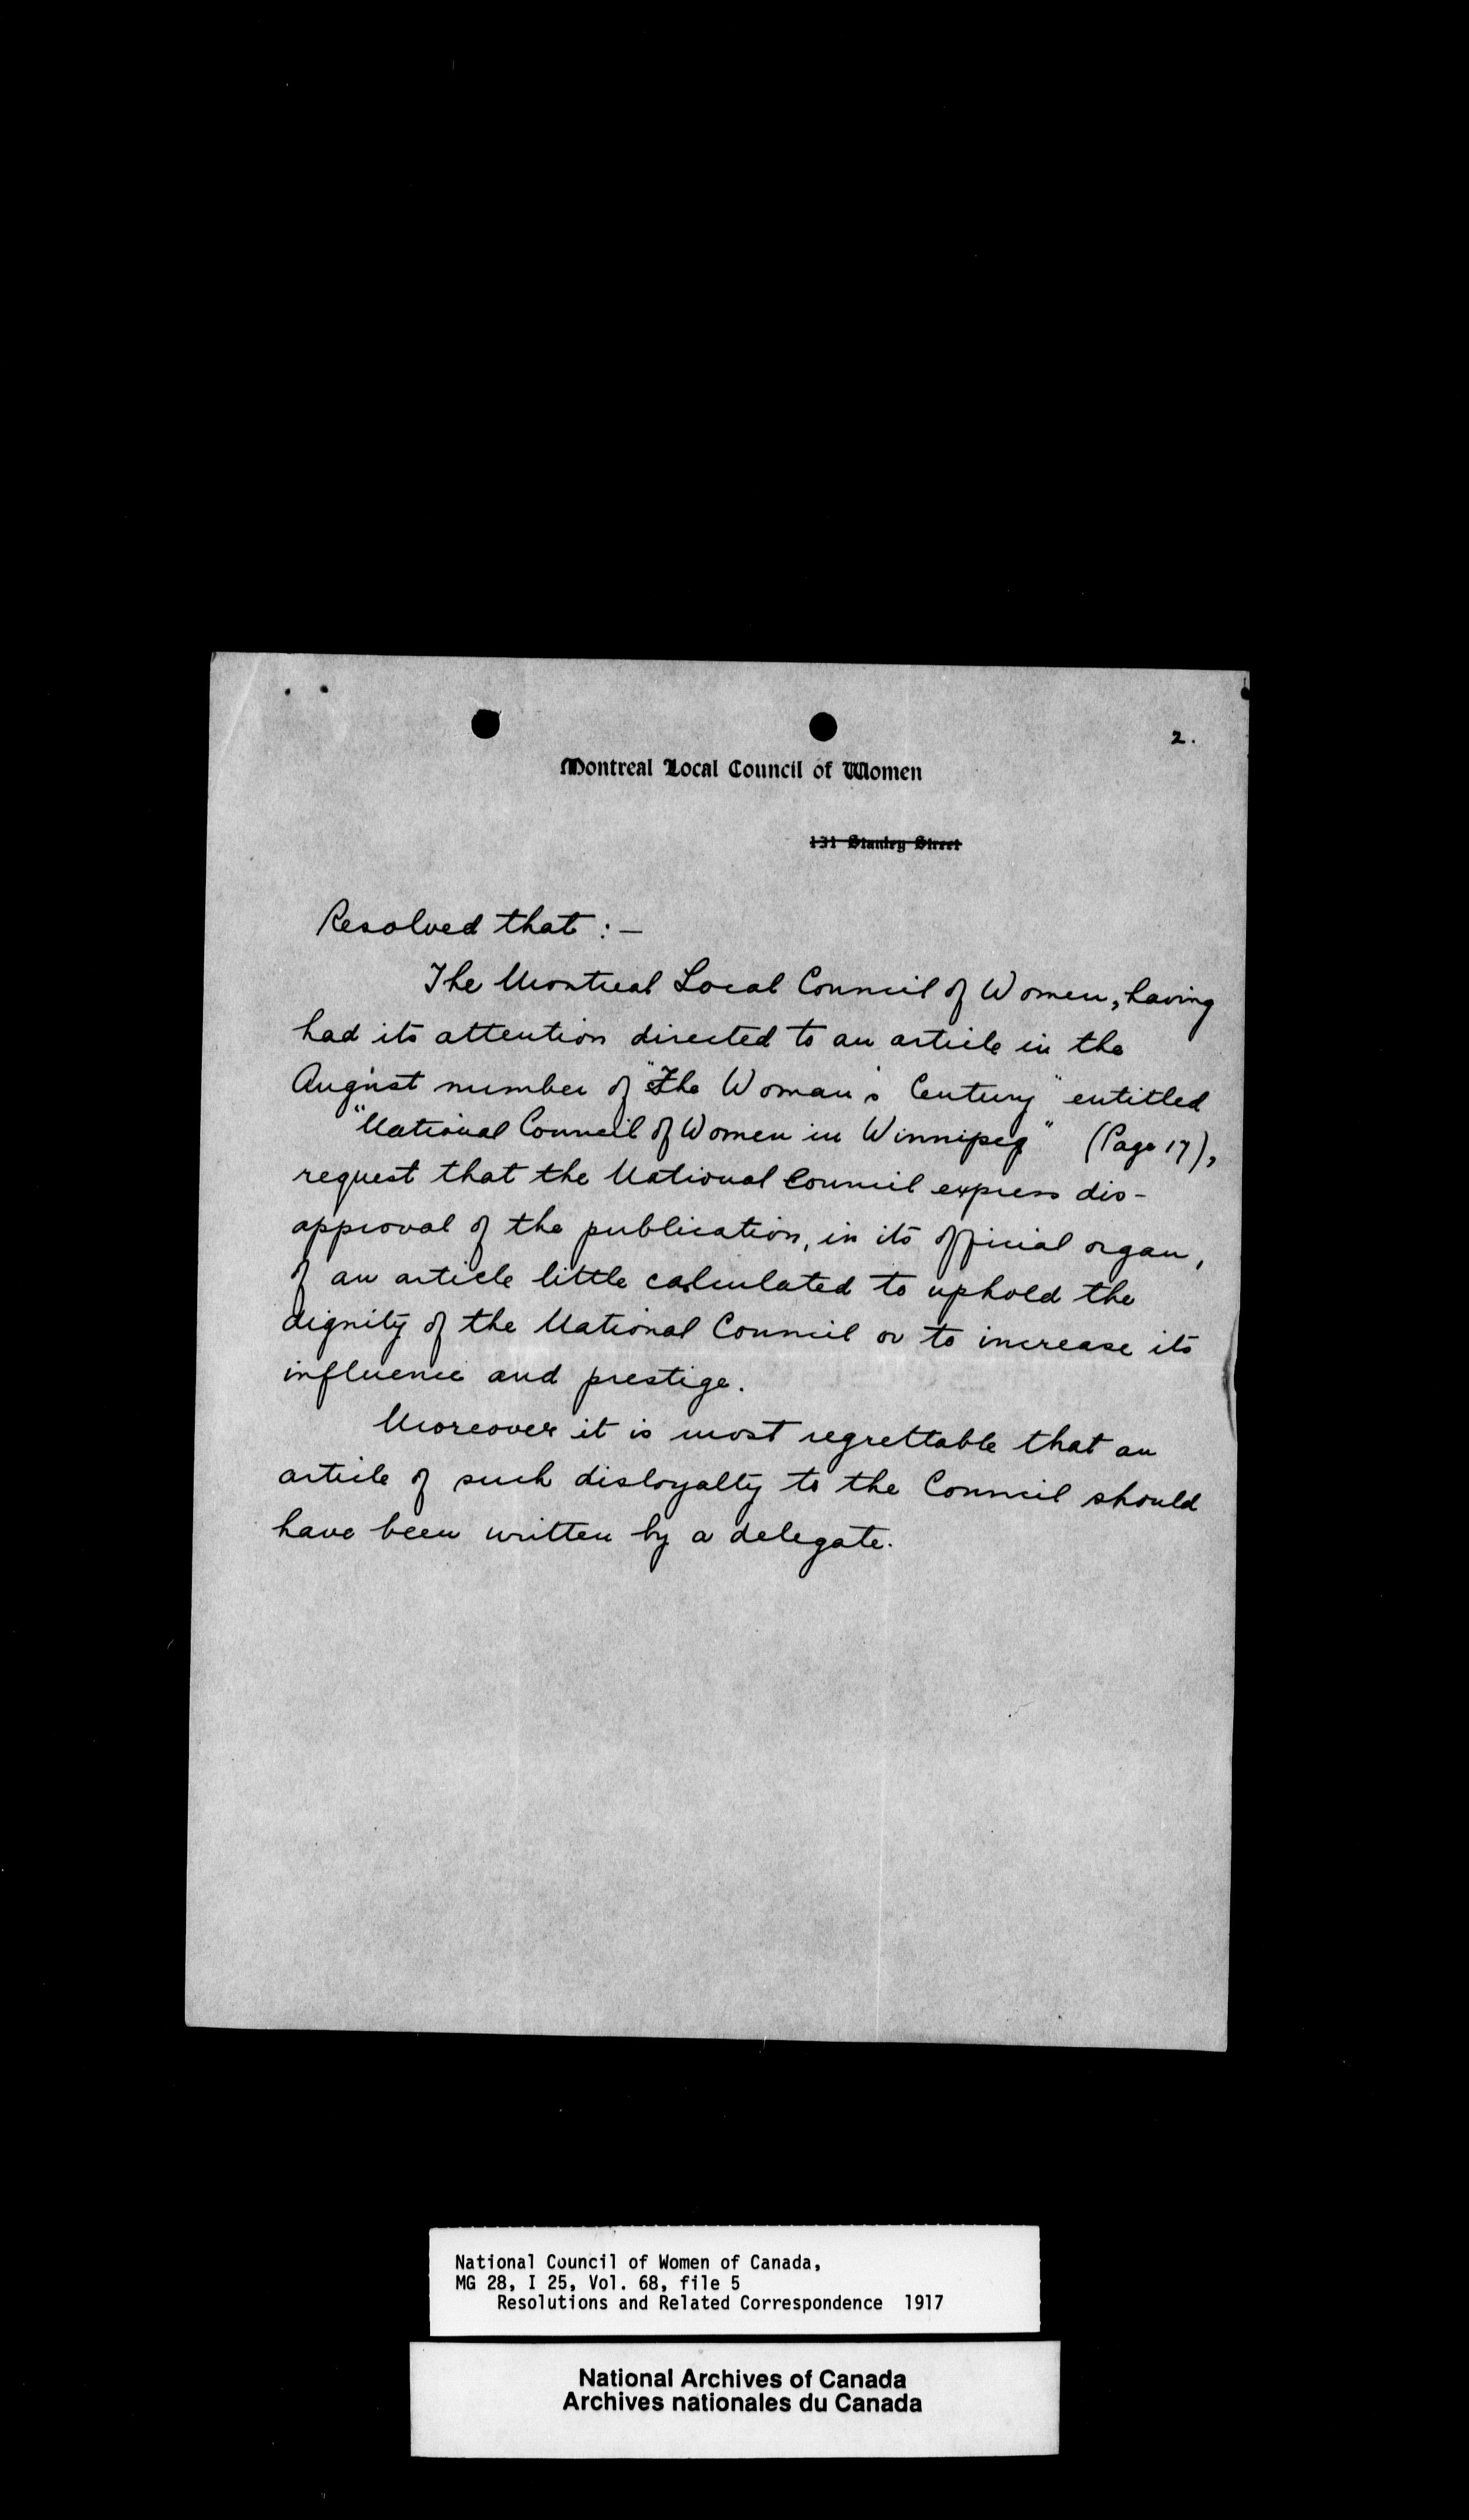 2.
Montreal Local Council of Women
131 Stanley Street
Resolved that :—
The Montreal Local Council of Women, having
had its attention directed to an article in the
August number of "The Woman's Century" entitled
"National Council of Women in Winnipeg" (Page 17),
request that the National Council express dis-
approval of the publication, in its official organ,
of an article little calculated to uphold the
dignity of the National Council or to increase its
influence and prestige.
Moreover it is most regrettable that an
article of such disloyalty to the Council should
have been written by a delegate.
National Council of Women of Canada,
MG 28, I 25, Vol. 68, file 5
Resolutions and Related Correspondence 1917
National Archives of Canada
Archives nationales du Canada